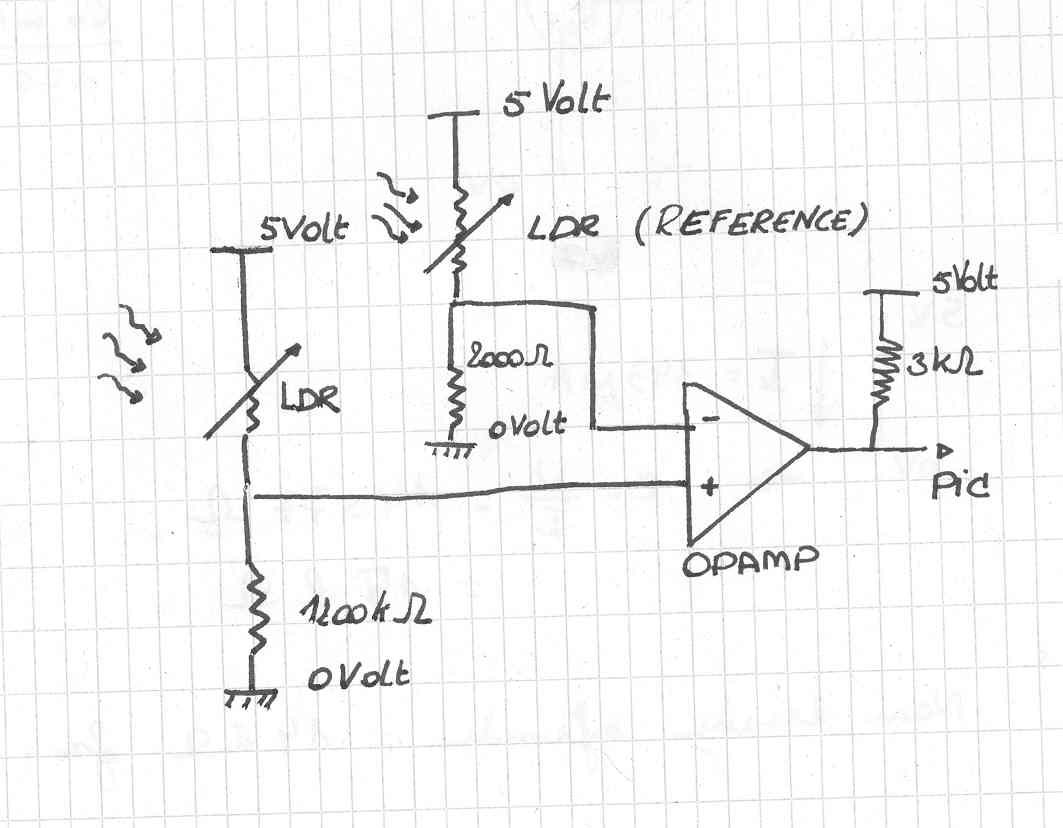 5 Volt
LDR (REFERENCE)
5Volt
5Volt
2000Ω
3kΩ
LDR
0Volt
-
+
Pic
OPAMP
0Volt